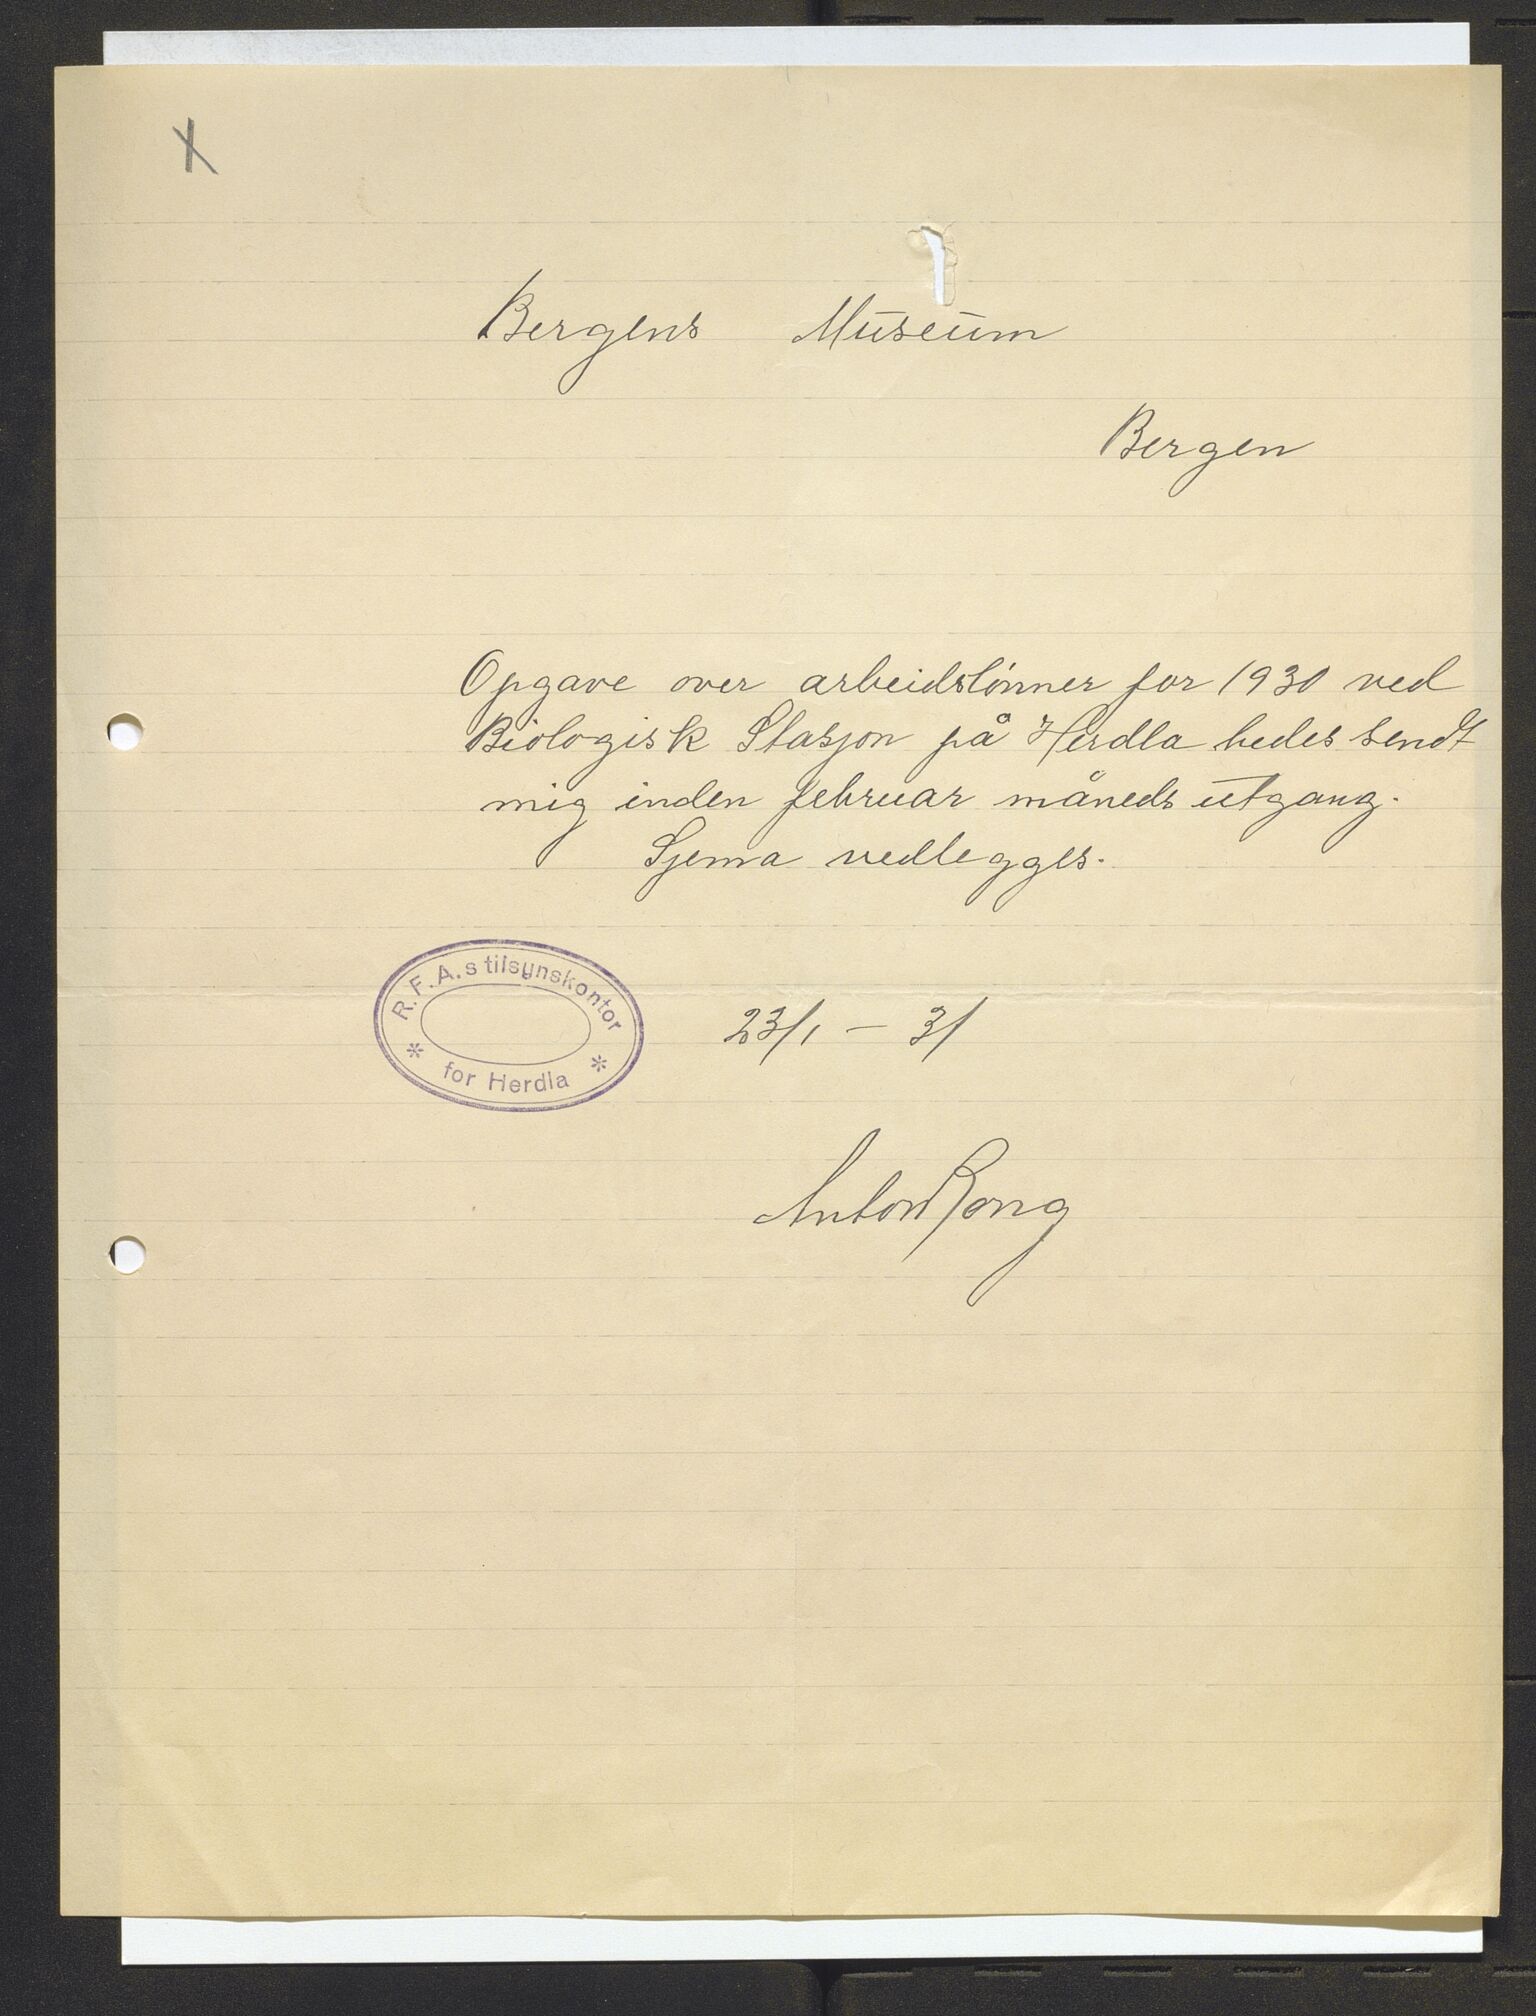 X
Bergens Museum
Bergen
Opgave over arbeidslönner for 1930 ved
Biologisk Stasjon på Herdla bedes sendt
mig inden februar måneds utgang.
Sjema vedlegges.
R.F.A.s tilsynskontor
* for Herdla *
23/1 - 31
Anton Rong